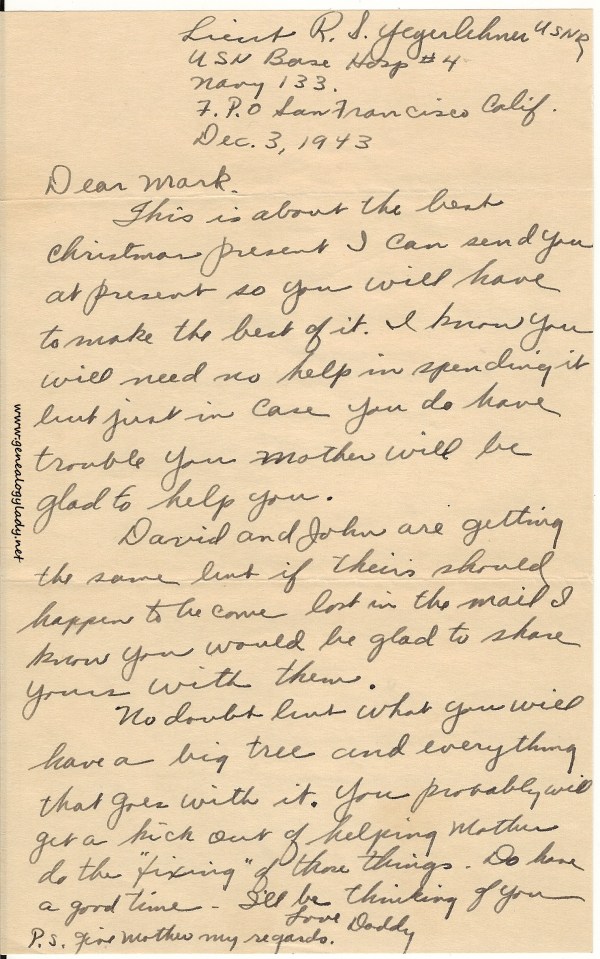 Lieut R. S. Yegerlehner USNR
USN Base Hosp #4
Navy 133.
F.P.O San Francisco Calif.
Dec. 3, 1943
Dear Mark.
This is about the best
christmas present I can send you
at present so you will have
to make the best of it. I know you
will need no help in spending it
but just in case you do have
trouble you mother will be
glad to help you.
David and John are getting
the same but if theirs should
happen to be come lost in the mail I
know you would be glad to share
yours with them.
No doubt but what you will
have a big tree and everything
that goes with it. You probably will
get a kick out of helping Mother
do the "fixing" of those things. Do have
a good time - I'll be thinking of you
Love Daddy
P.S. Give Mother my regards.
www.genealogylady.net